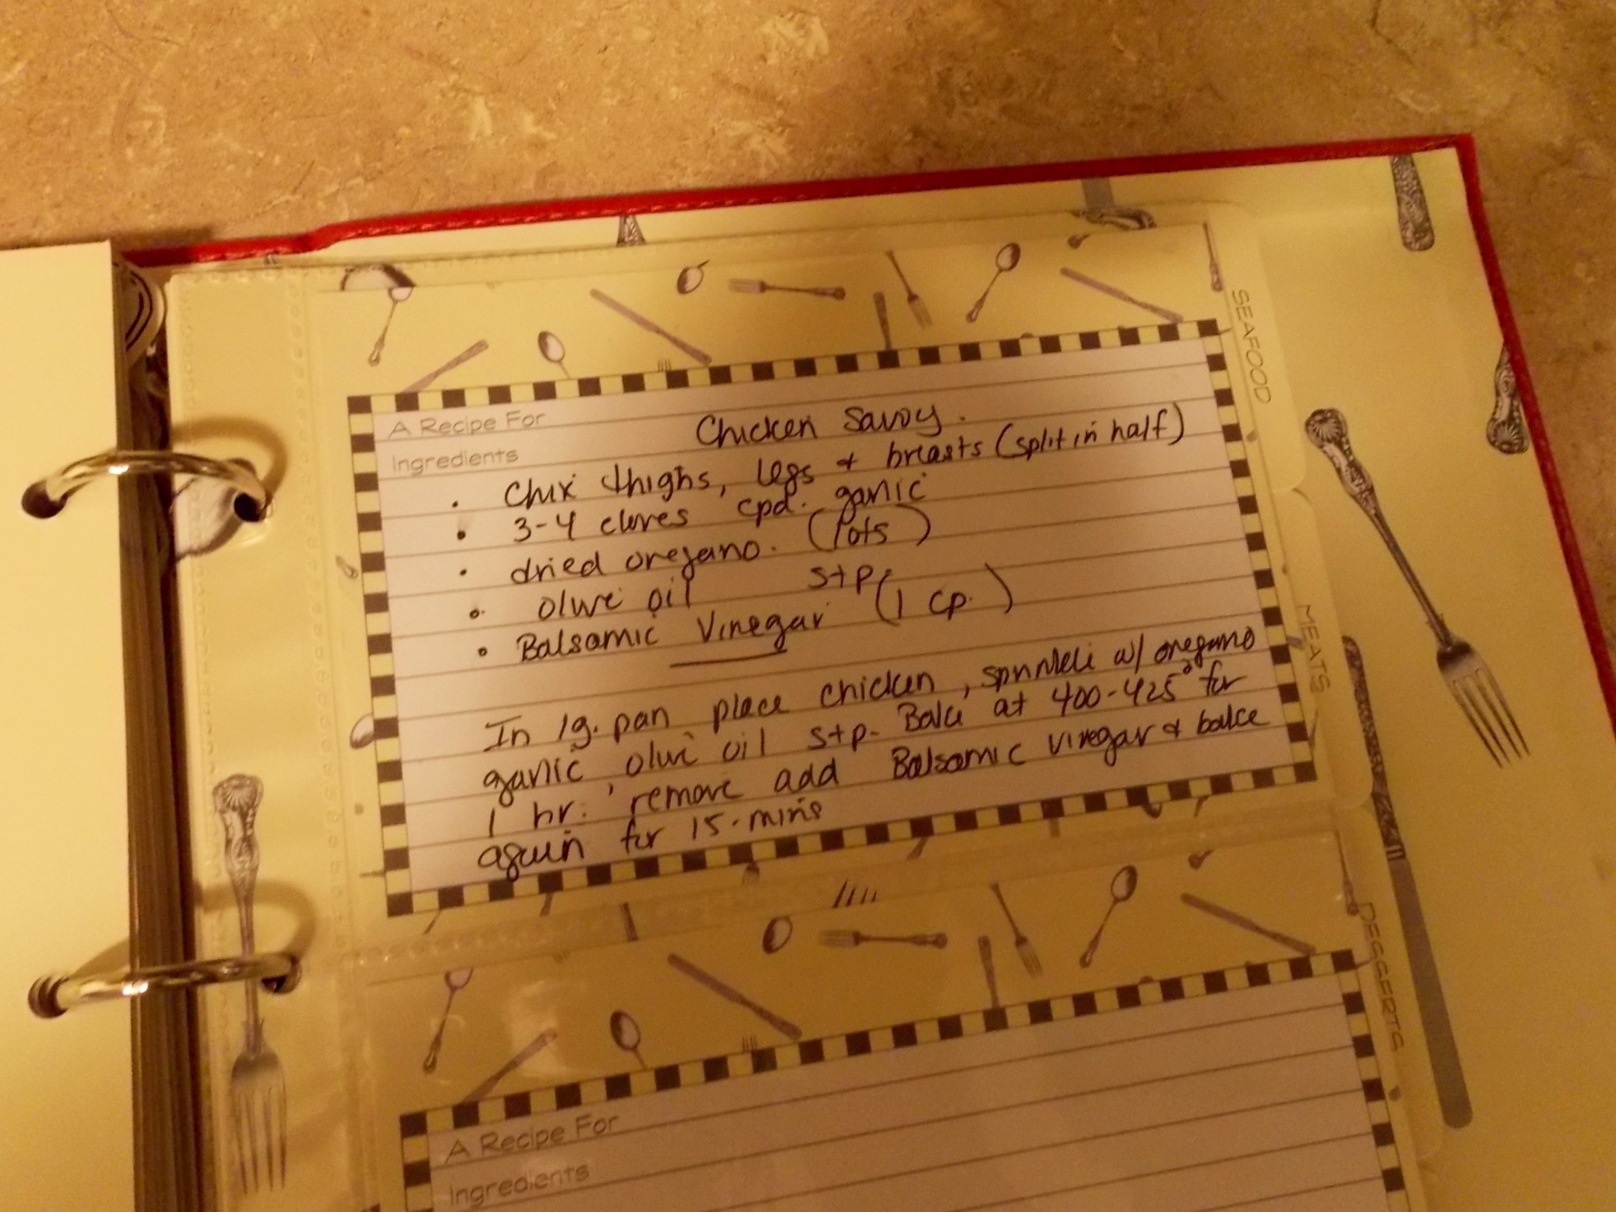 SEAFOOD
A Recipe For Chicken Savoy.
Ingredients
• Chix thighs, legs + breasts (split in half)
• 3-4 cloves cpd. garlic
• dried oregano. (lots)
• olive oil s+p
• Balsamic Vinegar (1 cp.)
In lg. pan place chicken, sprinkle w/ oregano
garlic, olive oil s+p. Bake at 400-425° for
1 hr. remove add Balsamic Vinegar & bake
again for 15 mins
MEATS
DESSERTS
A Recipe For
Ingredients